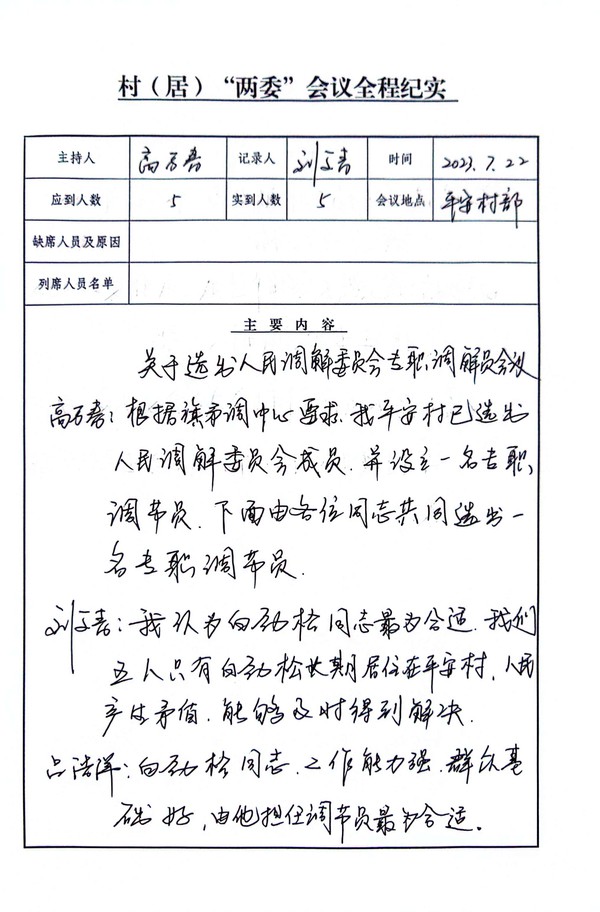 村（居）“两委”会议全程纪实
主持人 高万春 记录人 刘文春 时间 2023.7.22
应到人数 5 实到人数 5 会议地点 平安村部
缺席人员及原因
列席人员名单
主要内容
关于选出人民调解委员会专职调解员会议
高万春：根据旗矛调中心要求，我平安村已选出
人民调解委员会成员，并设立一名专职
调节员．下面由各位同志共同选出一
名专职调节员．
刘文春：我认为白劲松同志最为合适．我们
五人只有白劲松长期居住在平安村，人民
产生矛值．能够及时得到解决．
吕浩洋：白劲松同志．工作能力强．群众基
础好，由他担任调节员最为合适。